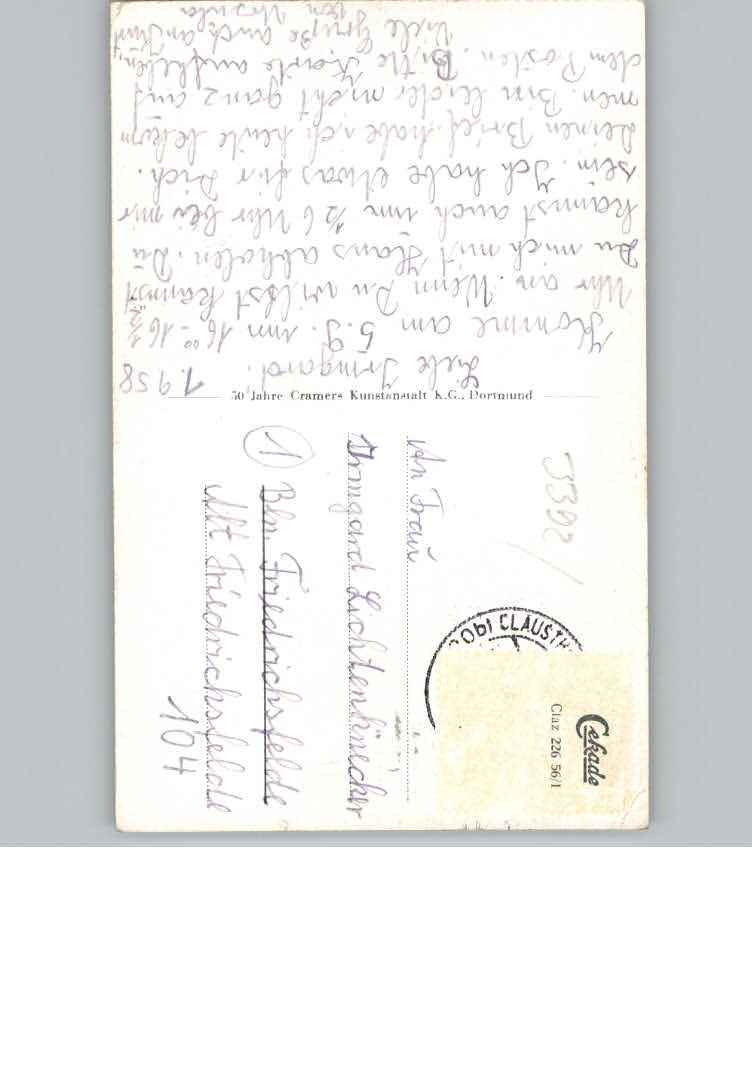 1.9.58
Liebe Irmgard!
Komme am 5.9. um 16⁰⁰-16½
Uhr an. Wenn Du willst kannst
Du mich mit Hans abholen. Du
kannst auch um ½ 6 Uhr bei mir
sein. Ich habe etwas für Dich.
Deinen Brief habe ich heute bekom
men. Bin leider nicht ganz auf
dem Posten. Bitte Karte aufheben,
Viele Grüße auch an Kurt
von Ursula
50 Jahre Cramers Kunstanstalt K.G., Dortmund
An Frau
Irmgard Lichtenknecker
① Bln. Friedrichsfelde
Alt Friedrichsfelde
104
5392/
OBI CLAUSTH
Cekade
Claz 226 56/1